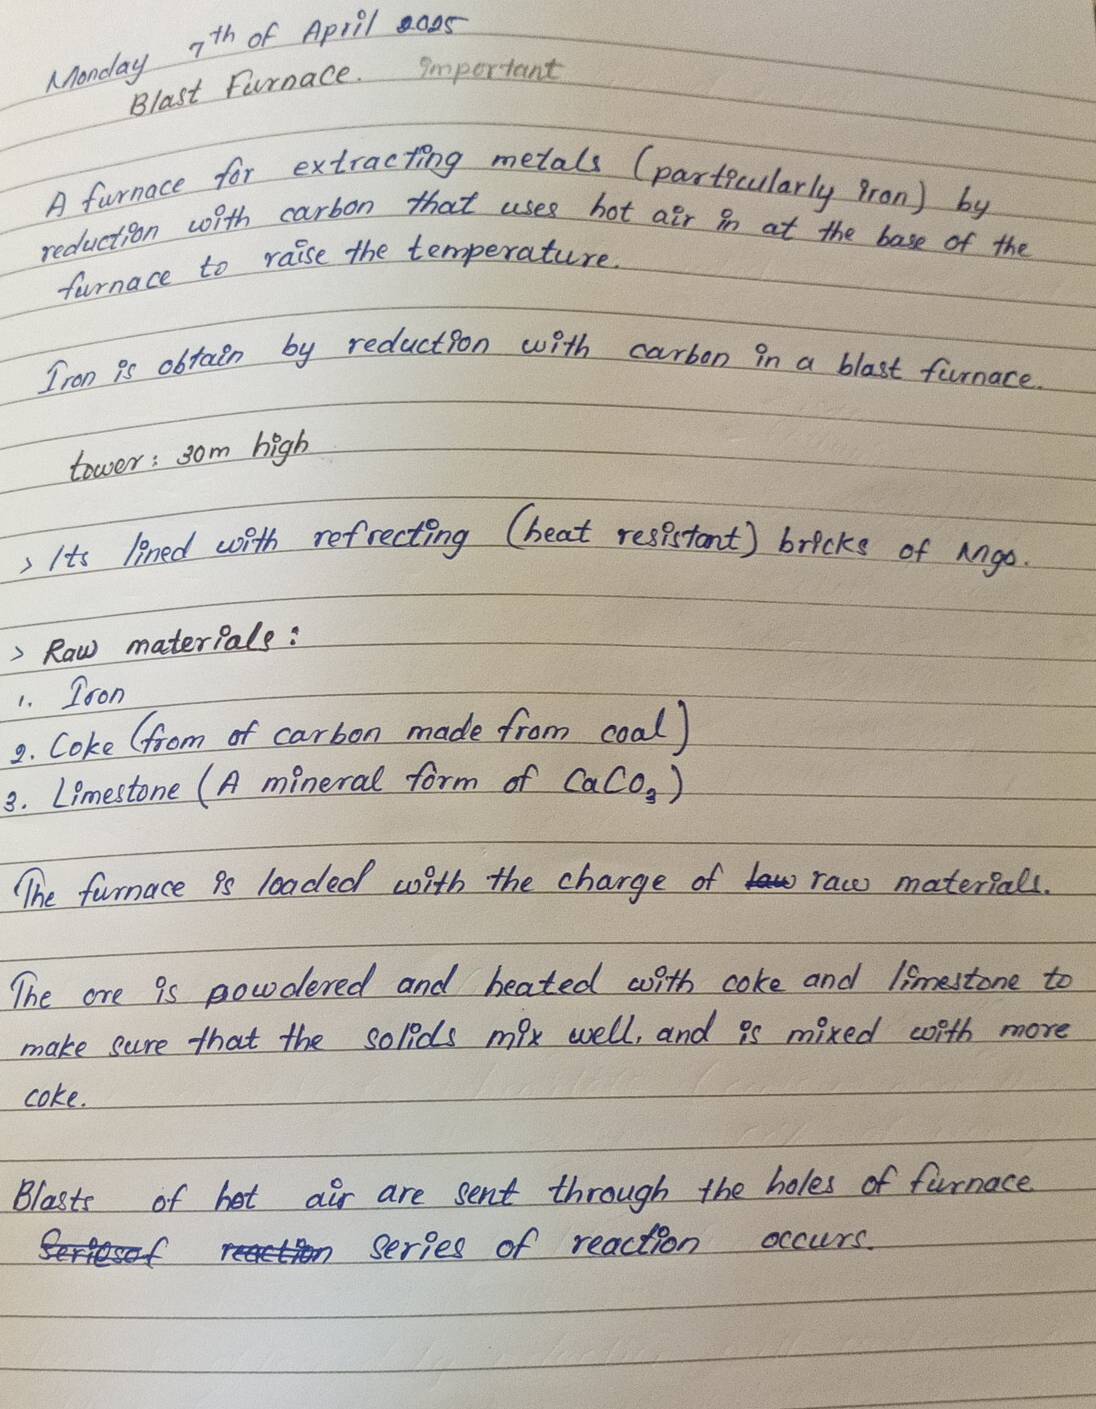 Monday 7th of April 2025
Blast Furnace. Important
A furnace for extracting metals (particularly iron) by
reduction with carbon that uses hot air in at the base of the
furnace to raise the temperature.
Iron is obtain by reduction with carbon in a blast furnace.
tower: 30m high
> Its lined with refrecting (heat resistant) bricks of Mgo.
> Raw materials:
1. Iron
2. Coke (from of carbon made from coal)
3. Limestone (A mineral form of CaCO₃)
The furnace is loaded with the charge of law raw materials.
The ore is powdered and heated with coke and limestone to
make sure that the solids mix well, and is mixed with more
coke.
Blasts of hot air are sent through the holes of furnace
Series of reaction series of reaction occurs.